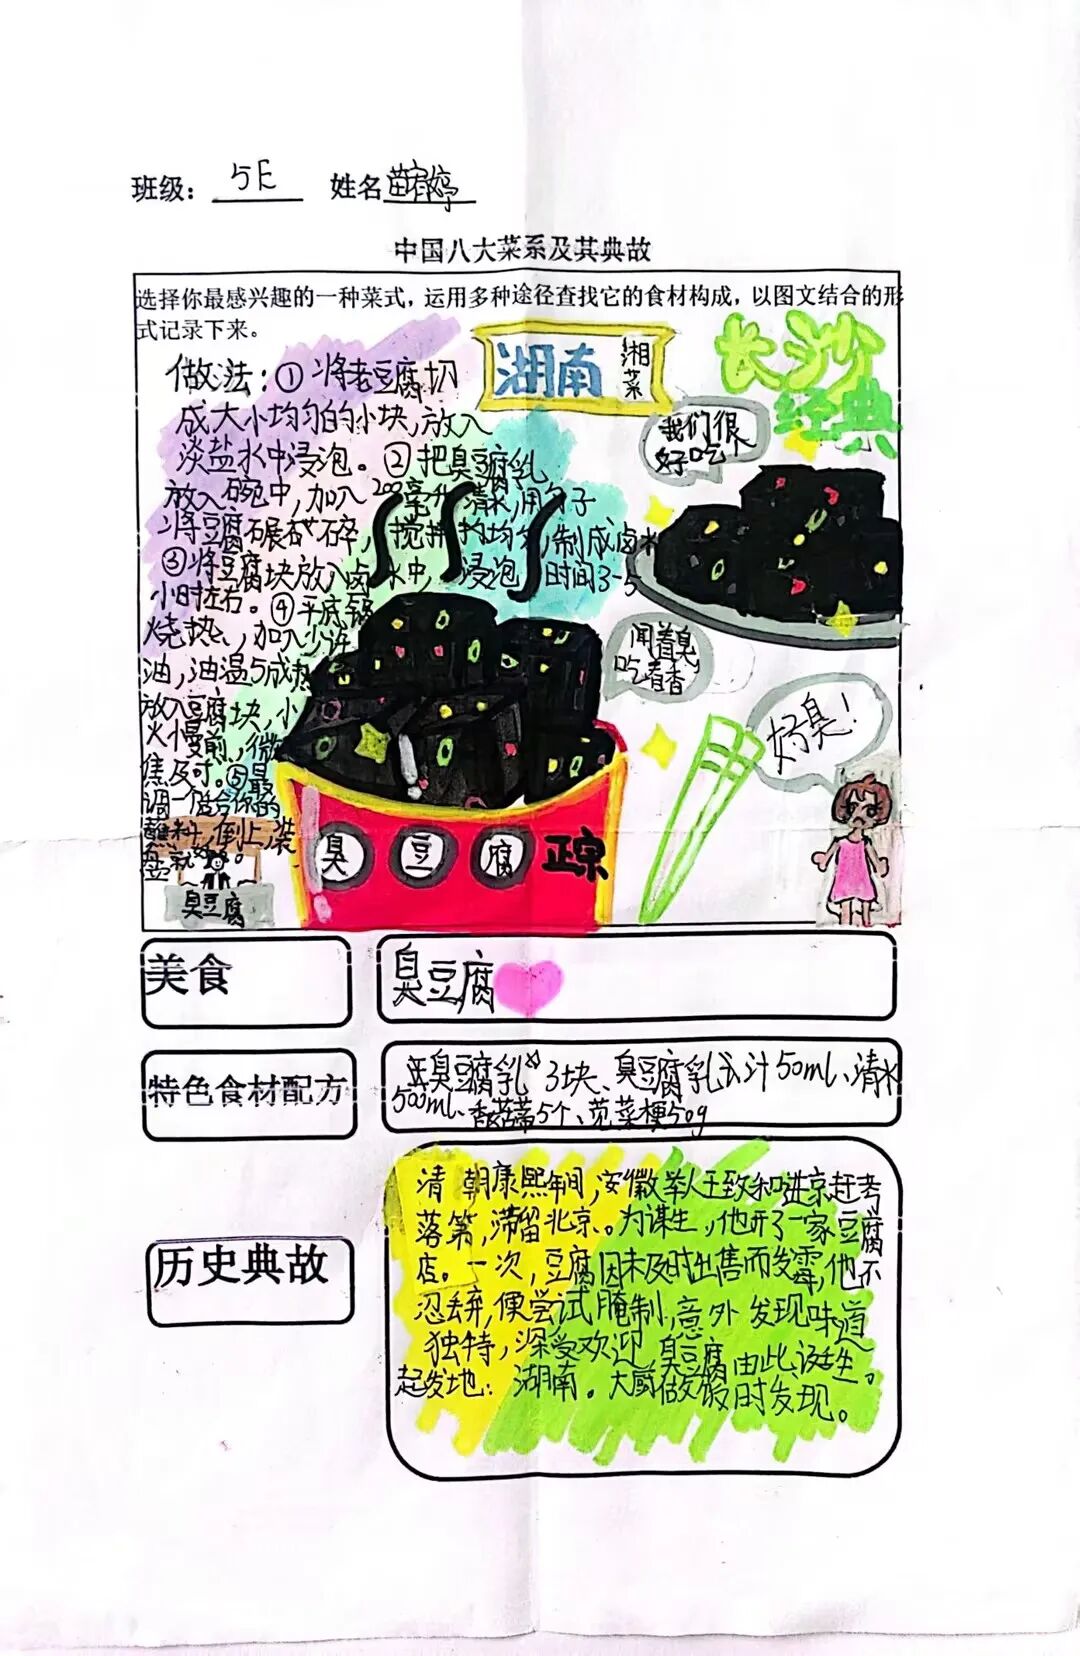 班级：5E 姓名
中国八大菜系及其典故
选择你最感兴趣的一种菜式，运用多种途径查找它的食材构成，以图文结合的形
式记录下来。
湖南
湘菜
长沙
经典
做法：①将老豆腐切
成大小均匀的小块，放入
淡盐水中浸泡。②把臭豆腐乳
放入碗中，加入200毫升清水，用勺子
将豆腐碾碎，搅拌均匀，制成卤水
③将豆腐块放入卤水中，浸泡时间3-5
小时左右。④平底锅
烧热，加入少许
油，油温5成热
放入豆腐块，小
火慢煎，微
焦及可。⑤最
调一个适合你的
蘸料，倒上，装
盘就好。
我们很
好吃
闻着臭
吃着香
好臭！
臭豆腐
正宗
臭豆腐
美食
臭豆腐
特色食材配方
臭豆腐乳 3块、臭豆腐乳汁50ml、清水
500ml、香菇蒂5个、苋菜梗50g
历史典故
清朝康熙年间，安徽举人王致和进京赶考
落第，滞留北京。为谋生，他开了一家豆腐
店。一次，豆腐因未及时出售而发霉，他不
忍丢弃，便尝试腌制，意外发现味道
独特，深受欢迎，臭豆腐由此诞生。
起发地：湖南。大厨做饭时发现。